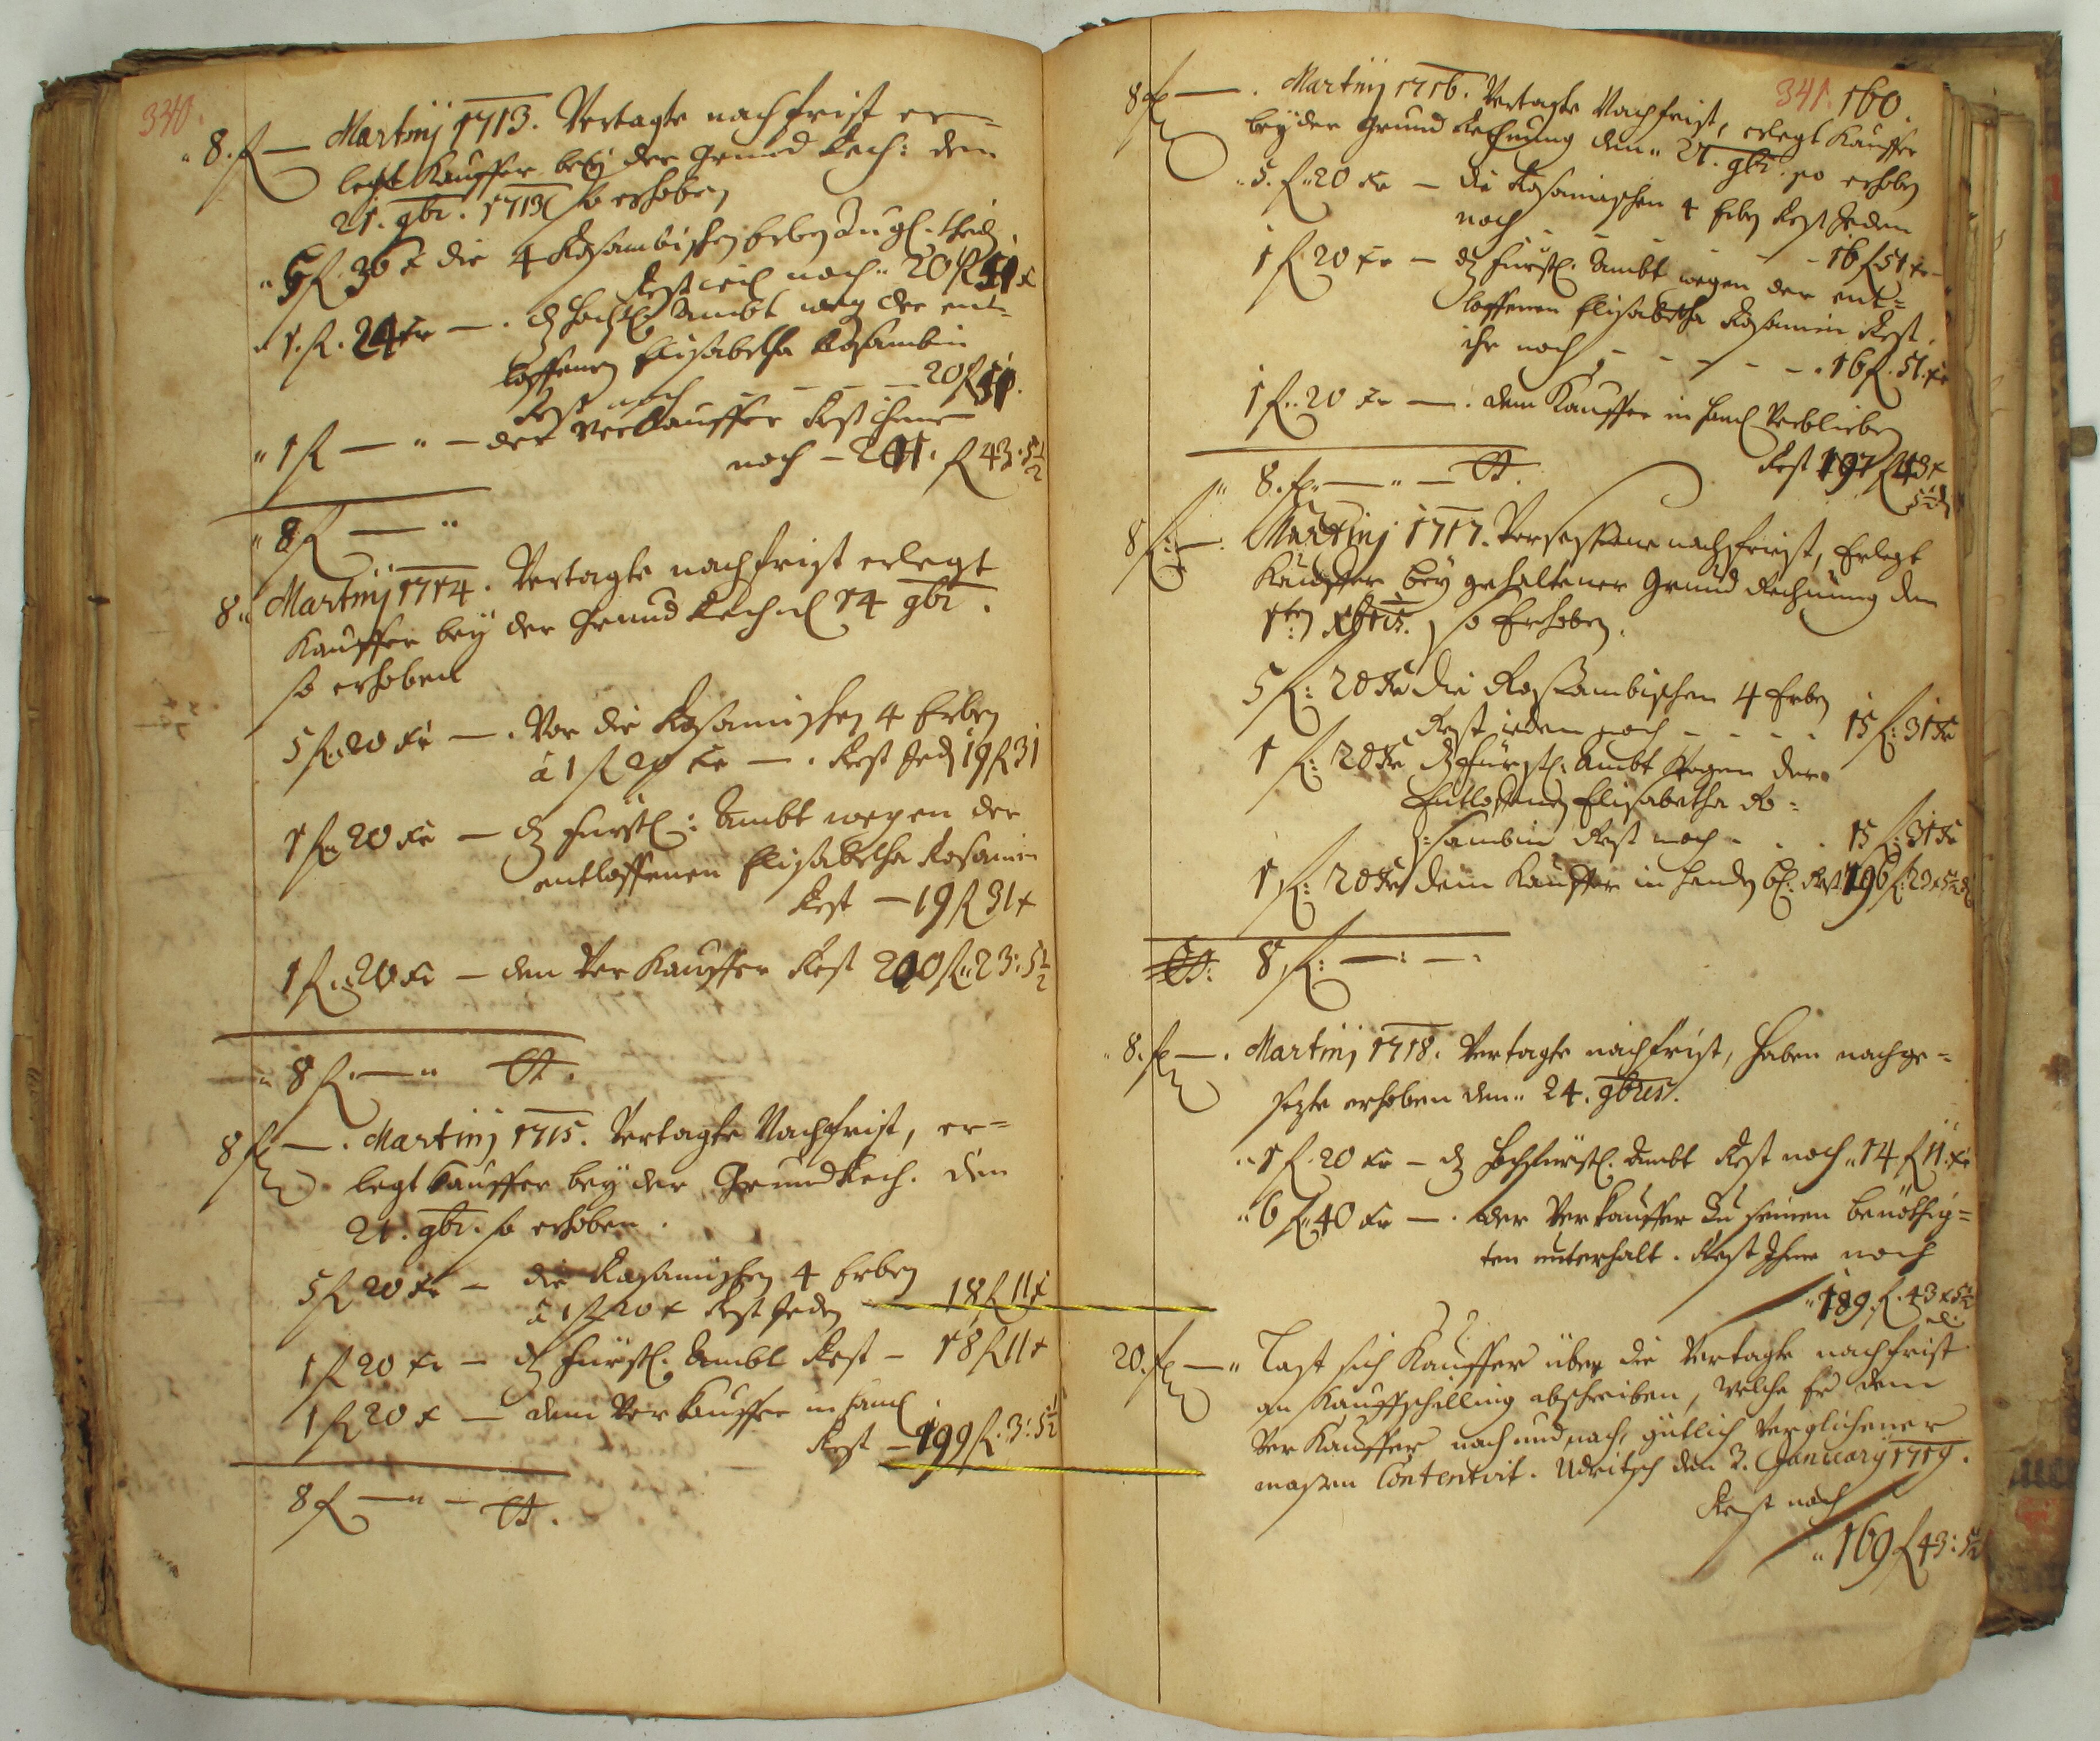 340.
8. f — Martinj 1713. Vertagte nachfrist er=
legt Kauffer beÿ der Grund Rech: den
21. gbr. 1713 so erhoben
5 f 36 x die 4 Rosambischen Erben zu gl. theil
Rest noch 20 f 51 x
1. f. 24 xr — . Ambt weg. der ent=
loffenen Elisabetha Rosambin
Rest noch — — — 20 f 51.
1 f — — der Verkauffer Rest ihme
noch — 201. f 43: 5½
8 f —
8 Martinj 1714. Vertagte nachfrist erlegt
Kauffer beÿ der Grund Rech. 14 gbr.
so erhoben
5 f 20 xr — . Vor die Rosamischen 4 Erben
à 1 f 20 xr — . Rest Jed. 19 f 31
1 f 20 xr — fürstl: Ambt wegen der
entloffenen Elisabetha Rosamin
Rest — 19 f 31 x
1 f 20 xr — dem Verkauffer Rest 200 f 23: 5½
8 f —
8 f — . Martinj 1715. Vertagte Nachfrist, er=
legt Kauffer beÿ der Grund Rech. den
21. gbr. so erhoben.
5 f 20 xr — die Rosamischen 4 Erben
à 1 f 20 x Rest Jeden — 18 f 11 x
1 f 20 xr — fürstl. Ambt Rest — 18 f 11 x
1 f 20 x — dem Verkauffer in hand
Rest — 199 f. 3: 5½
8 f —
341. 160.
8 f — . Martinj 1716. Vertagte Nachfrist, erlegt Kauffer
beÿ der Grund Rechnung den 21. gbr. so erhoben
5. f 20 xr — die Rosamischen 4 Erben Rest Jeden
noch — — — — 16 f 51 xr
1 f 20 xr — fürstl. Ambt wegen der ent=
loffenen Elisabetha Rosamin Rest
ihr noch — — — — 16 f. 51. xr
1 f. 20 xr — . dem Kauffer in hand Verblieben
Rest 197 f 43 x
5½
8. f —
8 f: — . Martinj 1717. Versessene nachfrist, Erlegt
Kauffer beÿ gehaltener Grund Rechnung den
1ten Xbris. so Erhoben.
5 f: 20 xr die Rossambischen 4 Erben
Rest jedem noch — — — 15 f: 31 xr
1 f: 20 xr fürstl: Ambt Wegen der
Entloffenen Elisabetha Ro=
:sambin Rest noch . . . 15 f: 31 xr
1 f: 20 xr dem Kauffer in handen Rest 196 f: 23 x 5½
8 f: — : — :
8. f — . Martinj 1718. Vertagte nachfrist, haben nachge=
sezte erhoben den 24. gbris.
1 f. 20 xr — Hochfürstl. Ambt Rest noch 14 f 11. xr
6 f 40 xr — . der Verkauffer zu seinen benöthig=
ten unterhalt. Rest Ihme noch
189. f. 43 x 5½
20. f — Last sich Kauffer über die Vertagte nachfrist
an Kauffschilling abschreiben, welche Er dem
Verkauffer nach und nach, gütlich Verglichener
massen Contentirt. Udritsch den 3. Januarÿ 1719.
Rest noch
169 f 43: 5½